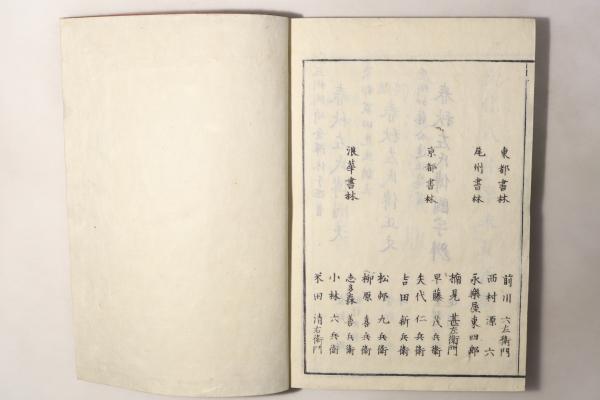 東都書林
前川六左衛門
西村源六
尾州書林
永樂屋東四郎
京都書林
梅見甚左衛門
早藤茂兵衛
矢代仁兵衛
吉田新兵衛
浪華書林
松邨九兵衛
柳原喜兵衛
志多森善兵衛
小林六兵衛
米田清右衛門